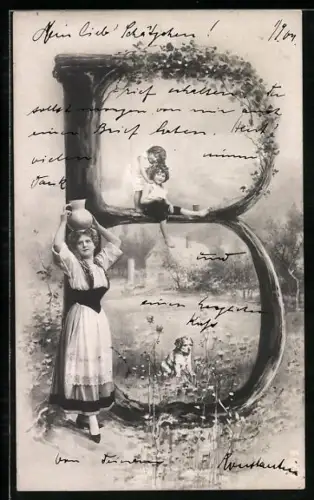 Mein lieb' Schätzchen! 1904
Brief erhalten. Du
sollst morgen von mir auch
einen Brief haben. Herzl
vielen nimm
Dank
und
einen herzlichen
Kuß
von Deinem Konstantin
B